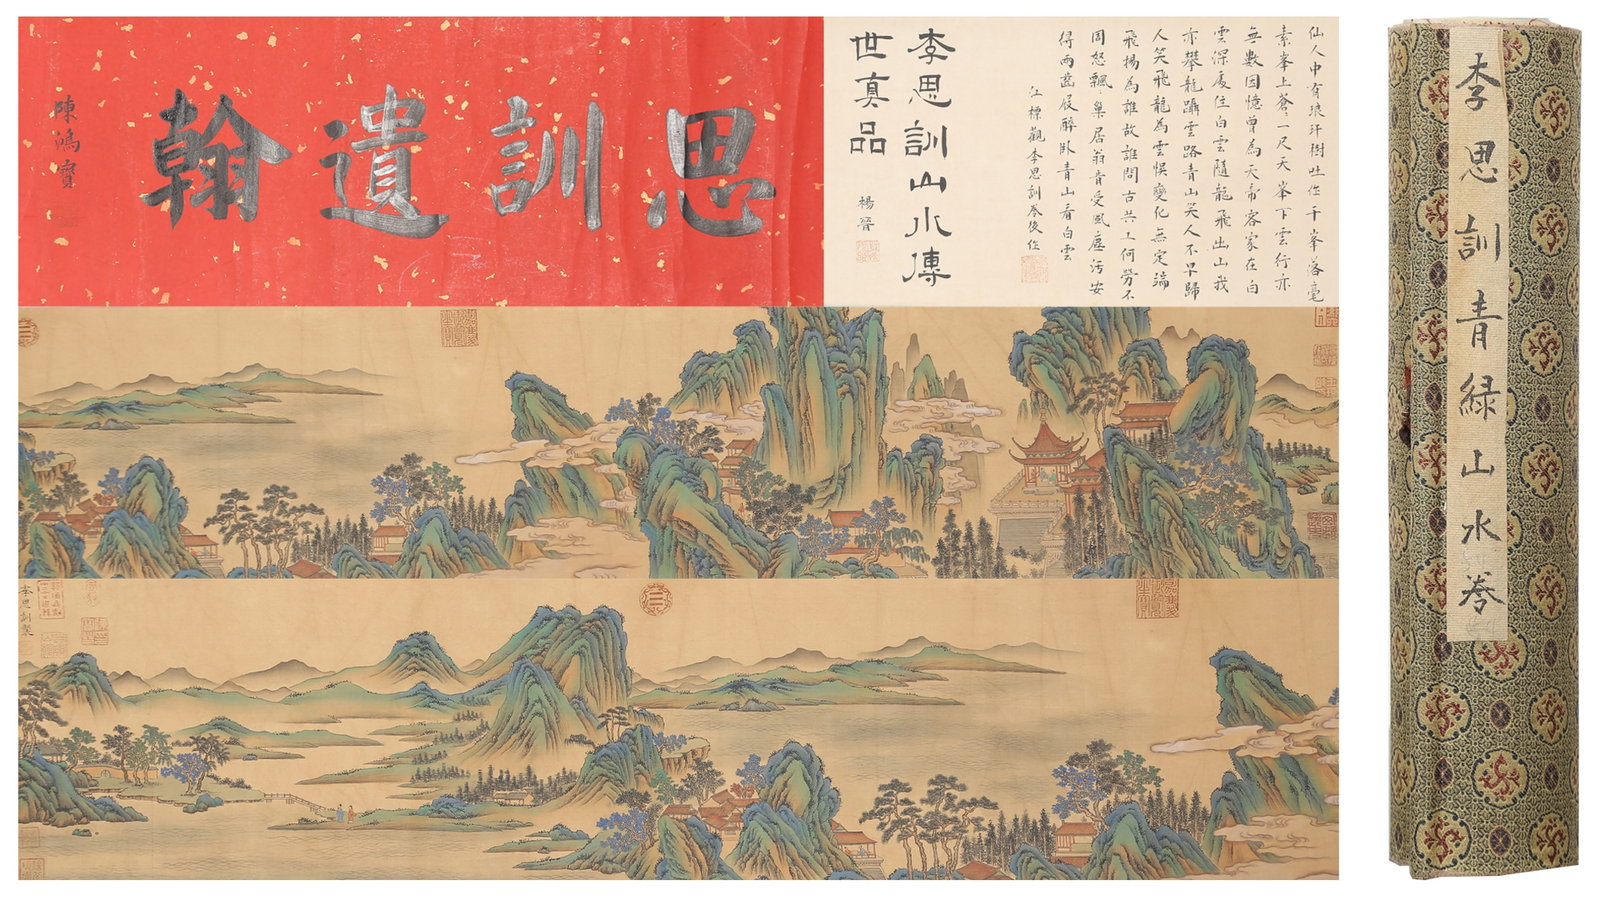 思訓遺翰
陳鴻寶
仙人中有琅玕樹吐作千峯落毫
素峯上蒼蒼一尺天峯下雲行亦
無數因憶曾為天帝客家在白
雲深處住白雲隨龍飛出山我
亦攀龍躡雲路青山笑人不早歸
人笑飛龍為雲悞變化無定端
飛揚為誰故誰問古共工何勞不
周怒飄巢居翁肯受風塵污安
得兩當屐醉臥青山看白雲
江標觀李思訓卷後作
李思訓山水傳
世真品
楊晉
李思訓製
李思訓青綠山水卷